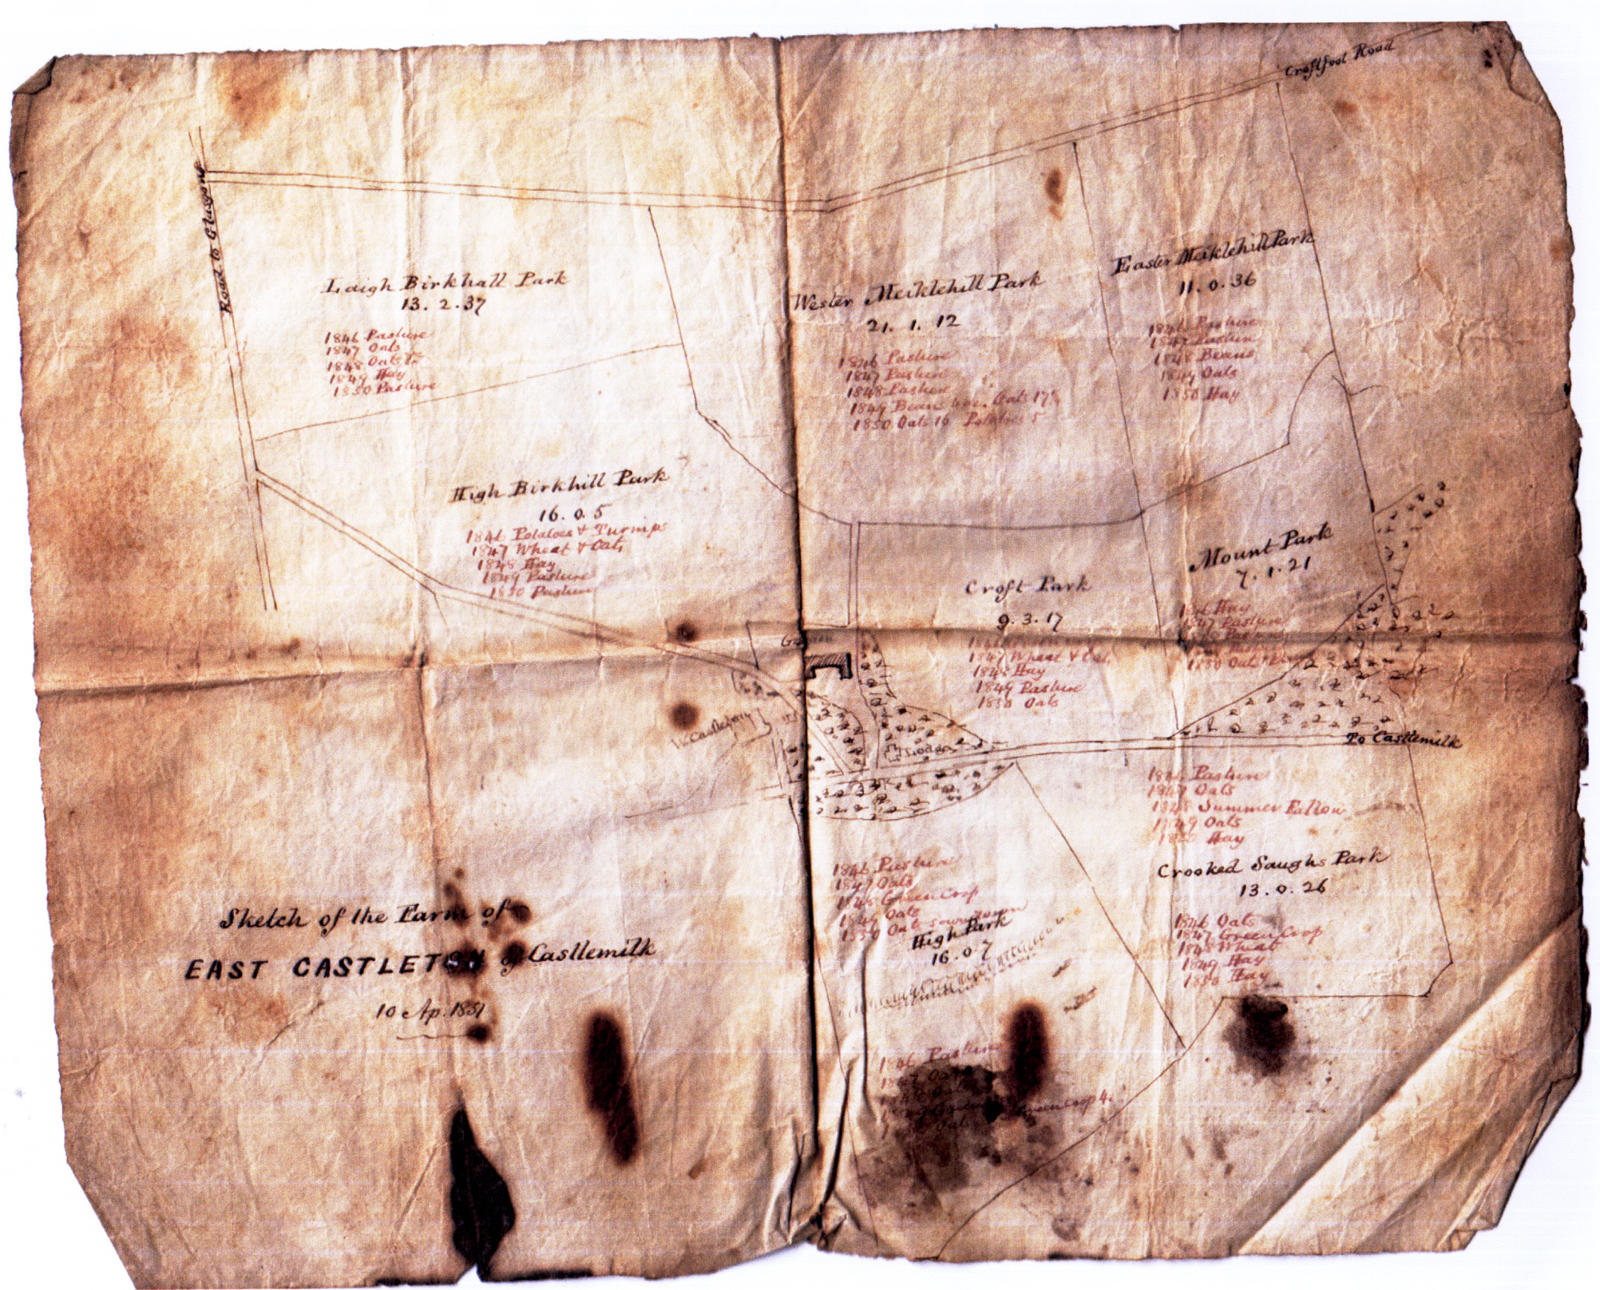 Croftfoot Road
Road to Glasgow
Laigh Birkhall Park
13. 2. 37
1846 Pasture
1847 Oats
1848 Oats
1849 Hay
1850 Pasture
Wester Meiklehill Park
21. 1. 12
1846 Pasture
1847 Pasture
1848 Pasture
1849 Beans Oats 17
1850 Oats 16 Potatoes 5
Easter Meiklehill Park
11. 0. 36
1846 Pasture
1847 Pasture
1848 Beans
1849 Oats
1850 Hay
High Birkhill Park
16. 0. 5
1846 Potatoes & Turnips
1847 Wheat & Oats
1848 Hay
1849 Pasture
1850 Pasture
Croft Park
9. 3. 17
1847 Wheat & Oats
1848 Hay
1849 Pasture
1850 Oats
Mount Park
7. 1. 21
1846 Hay
1847 Pasture
1850 Oats
Garden
Lodge
W. Castleton
To Castlemilk
1846 Pasture
1847 Oats
1848 Summer Fallow
1849 Oats
1850 Hay
Crooked Saughs Park
13. 0. 26
1846 Oats
1847 Green Crop
1848 Wheat
1849 Hay
1850 Hay
1846 Pasture
1847 Oats
1848 Green Crop
1849 Oats
1850 Oats sown down
High Park
16. 0. 7
1846 Pasture
1847
Green Crop 4
Sketch of the Farm of
EAST CASTLETON of Castlemilk
10 Ap. 1851